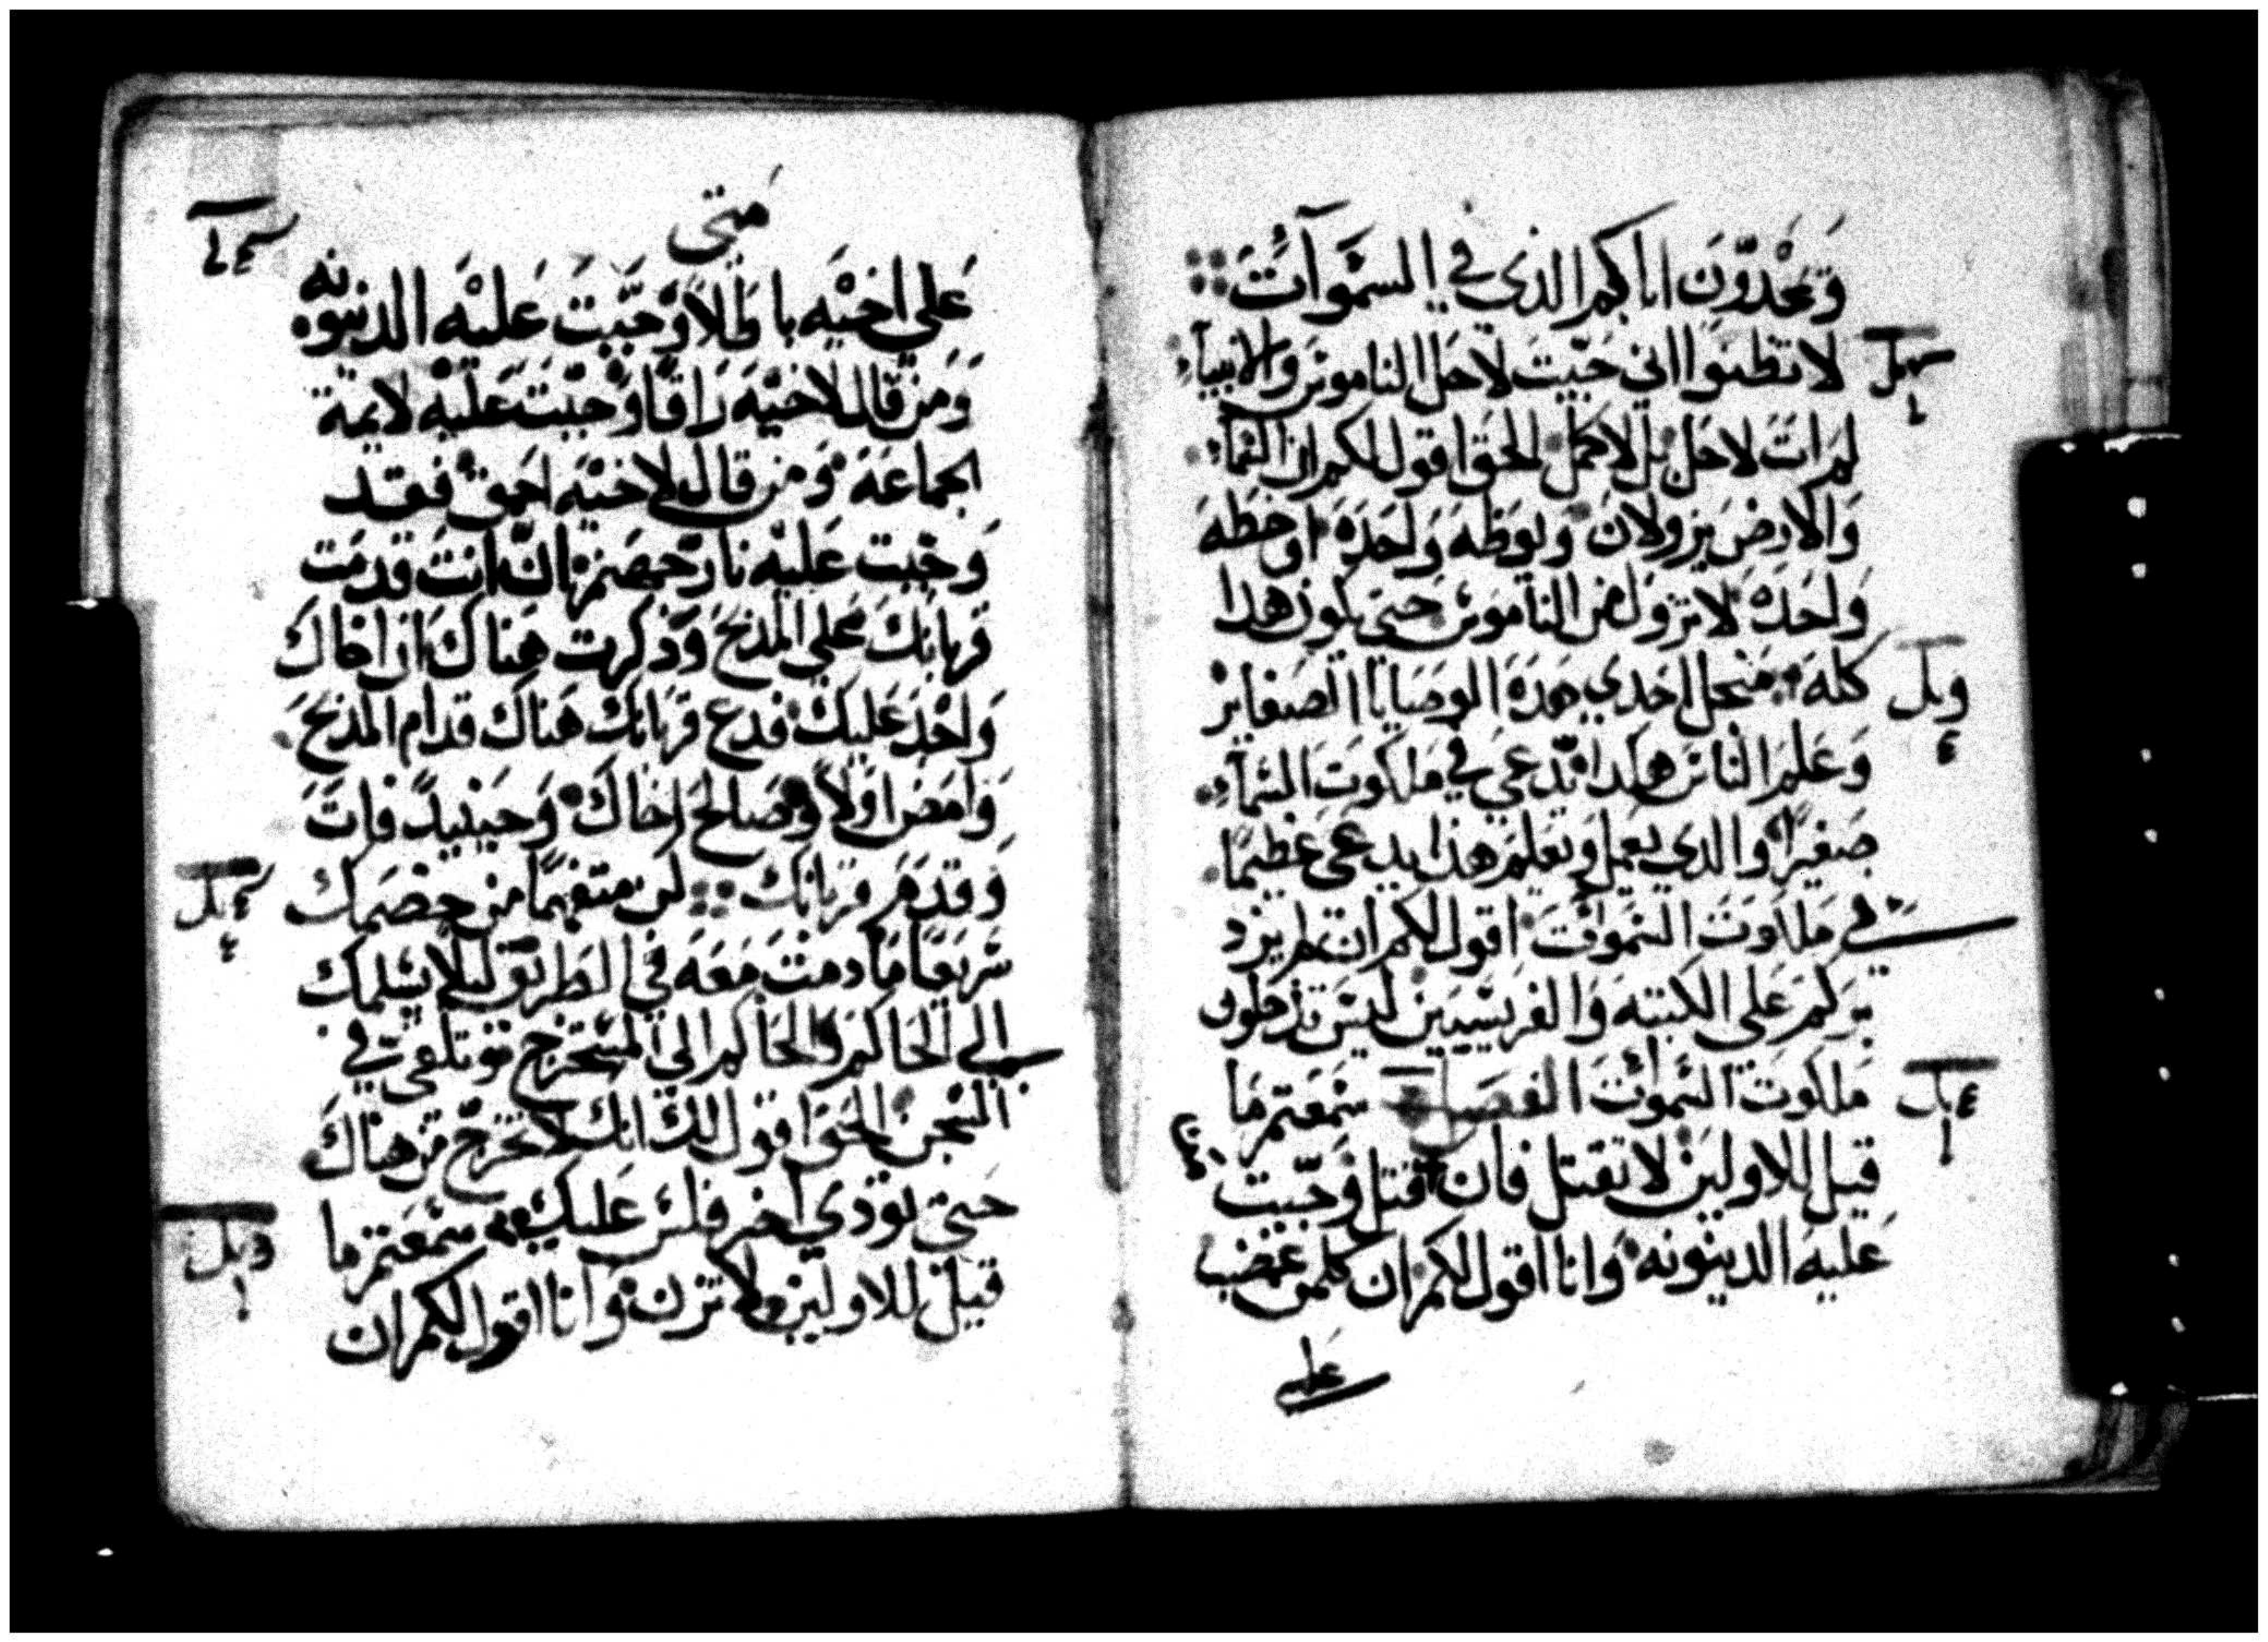 وَيمْجدّونَ اباكم الذي في السَمَوآت
لا تظنوا اني جَيّت لاحل الناموس والانبيآء
لم ات لاحل بل لاكمل الحق اقول لكم ان السَمآء
وَالارض يزولان ويوطه وَاحَده او خطه
وَاحَده لا تزول من الناموس حتي يكون هدا
كله من يحل احدي هده الوصايا الصغاير
وَعَلم الناس هكدا يدعي في ملكوت السمآء
صَغيرًا والدي يعمل ويَعلم هذا يدعَى عَظيمًا
في ملكوت السموات اقول لكم ان لم يزد
بركم عَلي الكتبه وَالفريسيين ليس تدخلون
ملكوت السموات الفصل سَمعتم مَا
قيل للاولين لا تقتل فان قتل وَجَبت
عَليه الدينونه وَانا اقول لكم ان كلمن غضب
عَلي
متي
عَلي اخيْه باطلا وَجَبت عَليْه الدينونه
وَمن قال لاخيْه رَاقا وَجبت عَليْه لايمة
الجماعَة وَمن قال لاخيْه احمق فقد
وَجبت عَليْه نار جهَنم ان انت قدمت
قربانك عَلي المدبح وَذكرت هناك ان اخاك
وَاجْد عَليك فدع قربانك هناك قدام المدبح
وَامض اولاً وَصَالح اخاك وَحينيدً فات
وَقدم قربانك كن متفهمًا من خصَمك
سَريعًا مَا دمت مَعَه في الطريق ليلا يسَلمك
الي الحَاكم وَالحَاكم الي المسَتخرج وتلقي في
السَجن الحق اقول لك انك لا تخرج من هناك
حَتي تودي اخر فلس عَليك سَمعتم ما
قيل للاولين لا تزن وَانا اقول لكم ان